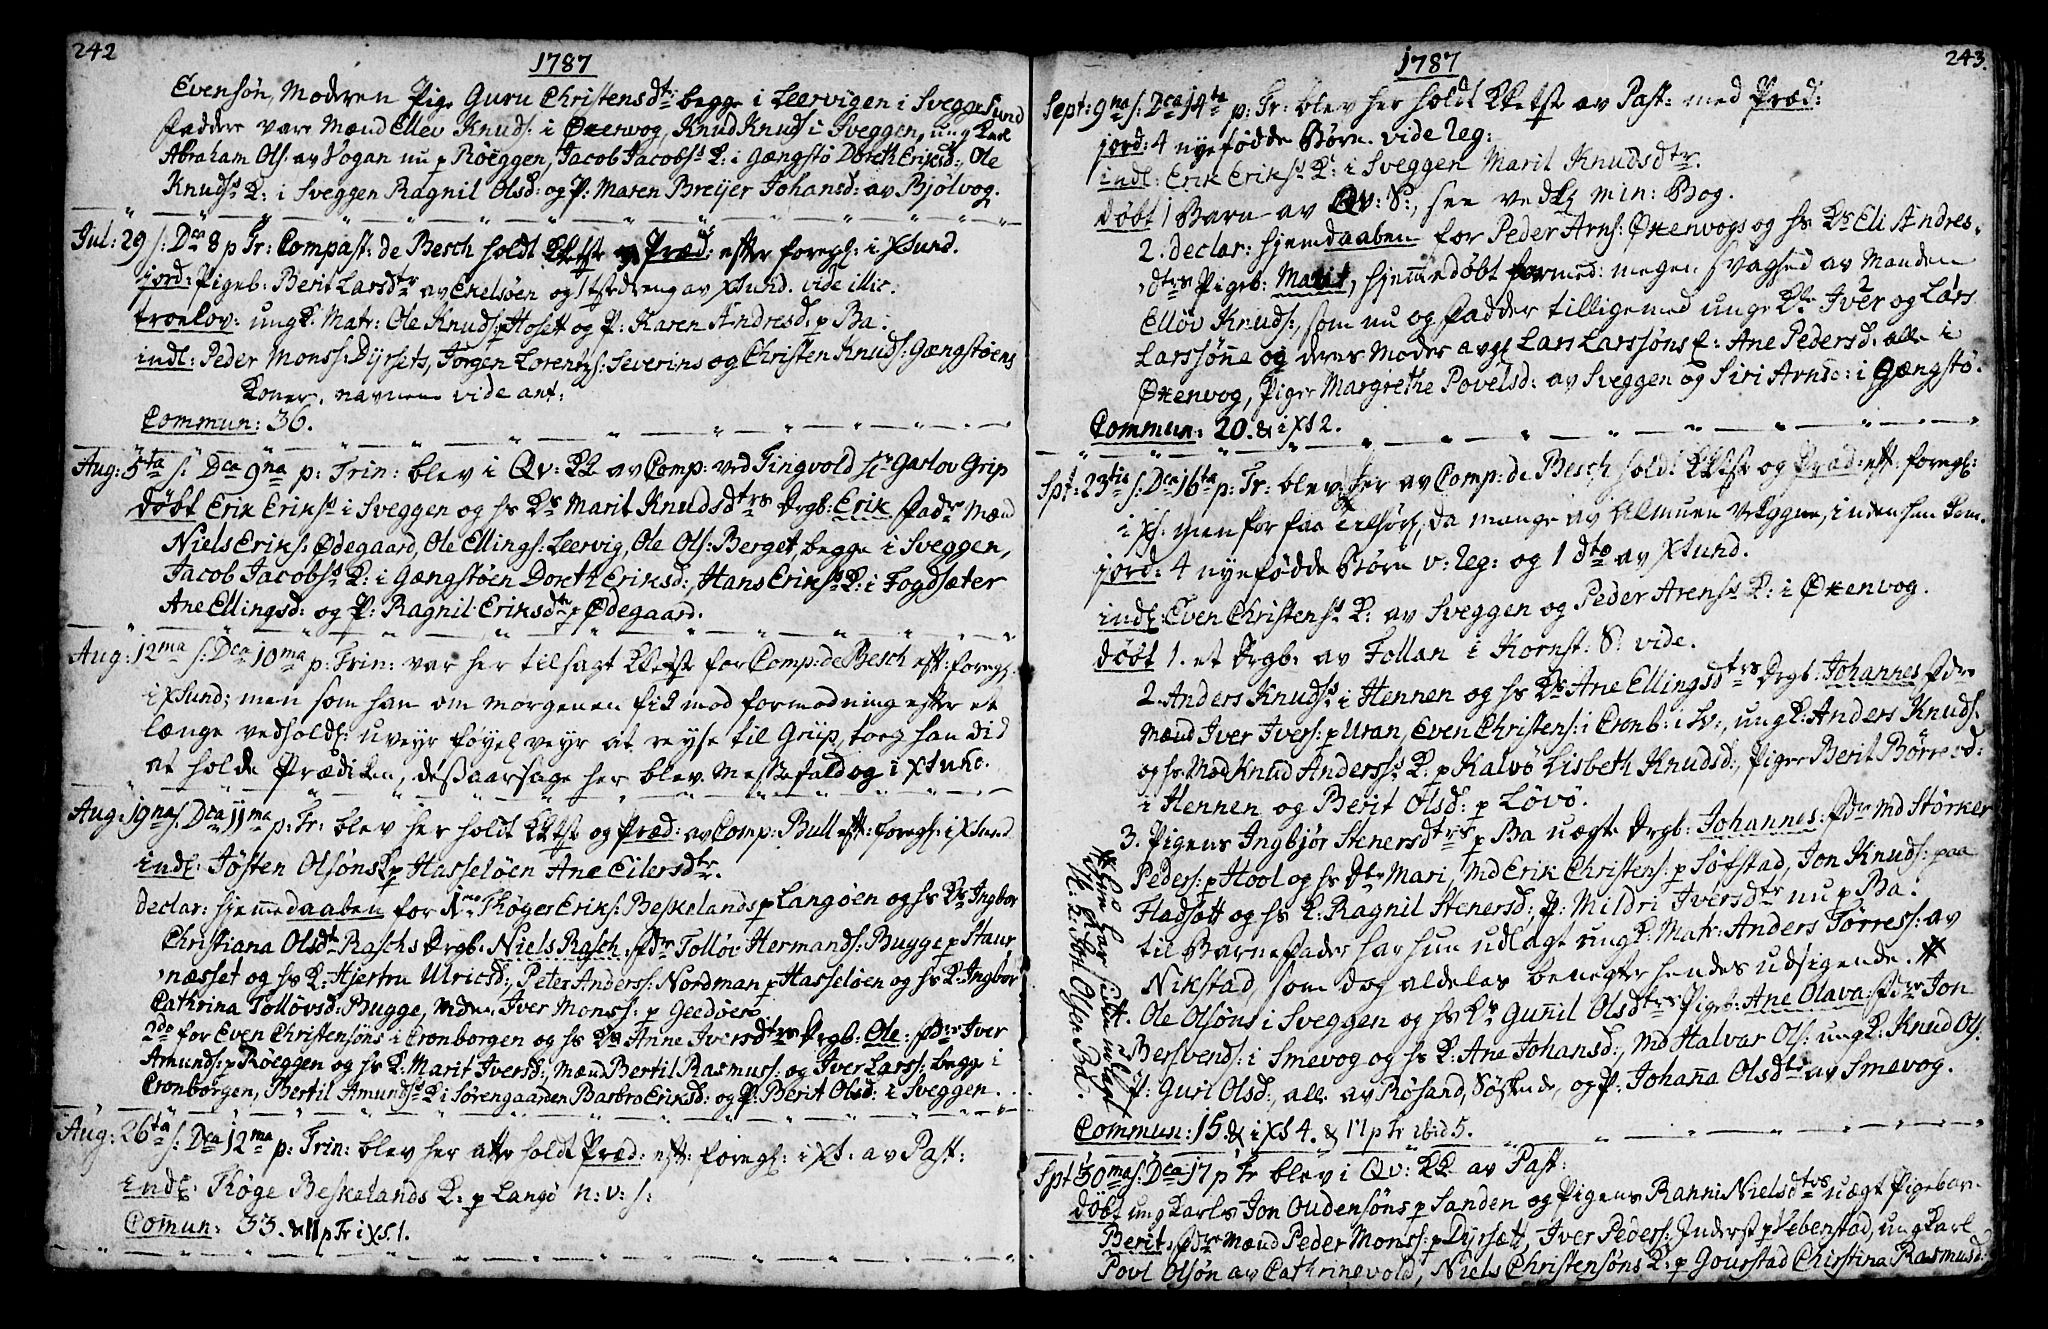 242
1787
Evensøn, Moderen Pige Guru Christensdtr begge i Leervigen i Sveggesund
Faddere vare Mænd Ellev Knuds: i Øxenvog, Knud Knuds i Sveggen, ung Karl
Abraham Ols: av Vogan nu p Røeggen, Jacob Jacobs: K: i Gængstø Dorth Eriksd:, Ole
Knuds: K: i Sveggen Ragnil Olsd: og P: Maren Breijer Johansd: av Bjølvog.
Jul: 29 s: Dca 8 p Tr: Compast: de Besch holdt og Præd: efter foregh: i Xsund.
jord: Pigeb: Berit Larsdtr av Exelsøen og 1 av Xsund. vide illic.
troelov: ung K: Matr: Ole Knuds: p Hosett og P: Karen Andresd: p Ba:
indl: Peder Monss: Dyrsets, Jørgen Lorentzs: Severins og Christen Knuds: Gængstøens
Koner, navnene vide ant:
Commun: 36.
Aug: 5ta s: Dca 9na p: Trin: blev i Qv: KK av Comp: ved Tingvold Hr Garlov Grip
døbt Erik Eriks: i Sveggen og hs Ks Marit Knudsdtrs Drgb: Erik. Fadr Mænd
Niels Eriks: Ødegaard, Ole Ellings: Leervig, Ole Ols: Berget, begge i Sveggen,
Jacob Jacobs: K: i Gængstøen Dorth Eriksd:, Hans Eriks: K: i Fogdsæter
Ane Ellingsd: og P: Ragnil Eriksdtr p Ødegaard.
Aug: 12ma s: Dca 10ma p: Trin: var her tilsagt for Comp: de Besch eft: foregh:
i Xsund; men som han om morgenen fik mod formodning efter et
længe vedholdt: uveyr føyel veyr at reyse til Griip, toeg han did
at holde Prædiken, desaarsage her blev Messefald og i Xsund.
Aug: 19na s: Dca 11ma p: Tr: blev her holdt og Præd: av Comp: Bull eft: foregh: i Xsund
indl: Jøsten Olsøns K p Hasseløen Ane Eilersdtr.
declar: hjemmedaaben for Thøger Eriks: Beskelands p Langøen og hs Ks Ingbor
Christiana Olsdtr Raschs Drgb: Niels Rasch, Fdr Tolløv Hermands: Bugge p Staur
næsset og hs K: Hjertru Ulricsd:, Peter Anders: Nordman p Hasseløen og hs K: Ingbor
Cathrina Tolløvsd: Bugge, Iver Monss: p Geedøen
2do for Even Christensøns i Cronborgen og hs Ks Anne Iversdtrs Drgb: Ole: Fdr Iver
Amunds: p Røeggen og hs K: Marit Iversd:, Mænd Bertil Rasmuss: og Iver Larss: begge i
Cronborgen, Bertil Amunds: K i Sørengaarden Barbro Eriksd: og P: Berit Olsd: i Sveggen.
Aug: 26ta s: Dca 12ma p: Trin: blev her atter holdt Præd: eft: foregh: i Xs. av Past:
indl: Thøge Beskelands K: p Langø n: v: s:
Comun: 33. & 11 p Tr i Xs. 1.
1787
243.
Sept: 9na s: Dca 14ta p: Tr: blev her holdt av Past: med Præd:
jord: 4 nyefødde Børn. vide reg:
indl: Erik Eriks: K: i Sveggen Marit Knudsdtr.
døbt 1 Barn av Qv: S:, see vedk: min: Bog.
2. declar: hjemdaaben for Peder Arns: Øxenvogs og hs Ks Eli Andres-
dtrs Pigeb: Marit, hjemmedøbt formed: megen svaghed av Manden
Elløv Knuds:, som nu og Fadder tilligemed unge Kle Iver og Lars
Larssønne og deres Moder avg: Lars Larssøns E: Ane Pedersd: alle i
Øxenvog, Piger Margrethe Povelsd: av Sveggen og Siri Arnsd: i Gængstø.
Commun: 20. & i Xs 2.
Spt: 23tia s: Dca 16ta p: Tr: blev her av Comp: de Besch holdt og Præd: eft: foregh:
i Xs: men for faa tilhør:, da mange av Almuen , inden han kom.
jord: 4 nyefødde Børn v: reg: og 1 dto av Xsund.
indl: Even Christens: K: av Sveggen og Peder Arens: K: i Øxenvog.
døbt 1. et Drgb: av Follan i Kornst: S: vide.
2. Anders Knuds: i Hennen og hs Ks Ane Ellingsdtrs Drgb: Johannes, Fdr
Mænd Iver Ivers: p Uran, Even Christens: i Cronb:, ung K: Anders Knuds:
og hs Mod Knud Anderss: K: p Kalvø Lisbeth Knudsd:, Piger Berit Børresd:
i Hennen og Berit Olsd: p Løvø.
3. Pigens Ingbjør Stenersdtrs p Ba uægte Drgb: Johannes: Fdr Md Størker
Peders: p Hool og hs Dtr Mari, Md Erik Christens: p Søfstad, Jon Knuds: paa
Fladsøtt og hs K: Ragnil Stenersd:, P: Mildri Iversdtr nu p Ba.
til Barnefader har hun udlagt ung K: Matr: Anders Torress: av
Nikstad, som dog aldeles benegter hendes udsigende.
Ole Olsøns i Sveggen og hs Ks Gunil Olsdtrs Pigeb: Ane Olava: Fdr Jon
Bersvends: i Smevog og hs K: Ane Johansd:, Md Halvar Ols: ung K: Knud Ols:
P: Guri Olsd:, alle av Røsand, Søskende, og P: Johana Olsdtr av Smevog.
Commun: 15. & i Xs 4. & 17 p Tr ibid 5.
Spt: 30ma s: Dca 17 p Tr blev i Qv: KK av Past:
døbt ung Karls Jon Oudensøns p Sanden og Pigens Ranni Nielsdtrs uægt Pigebarn
Berit, Fdr Mænd Peder Monss: p Dyrsett, Iver Peders: Inderst p Vebenstad, ung Karl
Povl Olsøn av Cathrinevold, Niels Christensøns K: p Gourstad Christina Rasmusd: